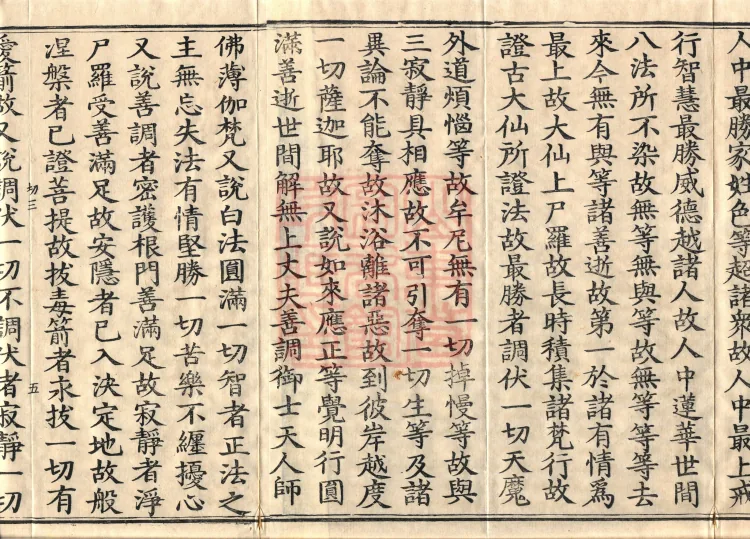 人中最勝家姓色等超諸衆故人中最上戒
行智慧最勝威德越諸人故人中蓮華世間
八法所不染故無等無與等故無等等等去
來今無有與等諸善逝故第一於諸有情爲
最上故大仙上尸羅故長時積集諸梵行故
證古大仙所證法故最勝者調伏一切天魔
外道煩惱等故牟尼無有一切掉慢等故與
三寂靜具相應故不可引奪一切生等及諸
異論不能奪故沐浴離諸惡故到彼岸越度
一切薩迦耶故又說如來應正等覺明行圓
滿善逝世間解無上丈夫善調御士天人師
佛薄伽梵又說白法圓滿一切智者正法之
主無忘失法有情堅勝一切苦樂不纏擾心
又說善調者密護根門善滿足故寂靜者淨
尸羅受善滿足故安隱者已入決定地故般
涅槃者已證菩提故拔毒箭者永拔一切有
切三
五
愛箭故又說調伏一切不調伏者寂靜一切